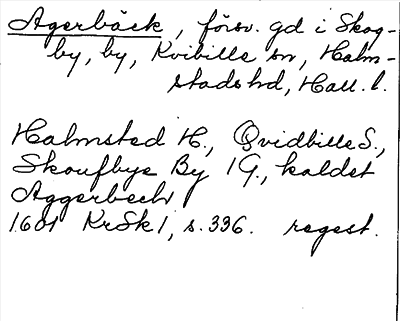 Agerbäck, försv. gd i Skog-
by, by, Kvibille sn, Halm-
stads hd, Hall. l.
Halmsted H., Qvidbille S.,
Skoufbye By 1 G., kaldet
Aggerbech
1601 KrSk 1, s. 336. regest.